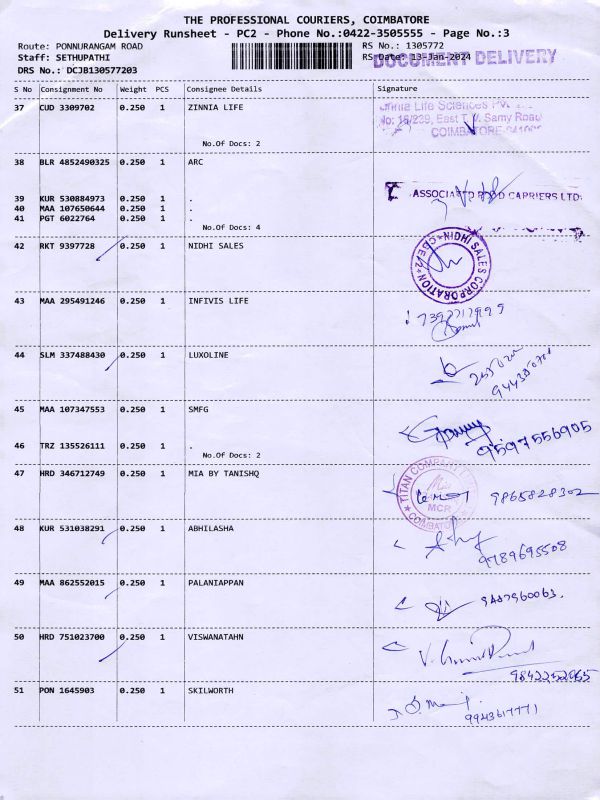 THE PROFESSIONAL COURIERS, COIMBATORE
Delivery Runsheet - PC2 - Phone No.:0422-3505555 - Page No.:3
Route: PONNURANGAM ROAD RS No.: 1305772
Staff: SETHUPATHI RS Date: 13-Jan-2024
DOCUMENT DELIVERY
DRS No.: DCJB130577203
S No Consignment No Weight PCS Consignee Details Signature
37 CUD 3309702 0.250 1 ZINNIA LIFE
Life Sciences
No: 16/239, East T.V. Samy Road
No.Of Docs: 2
38 BLR 4852490325 0.250 1 ARC
39 KUR 530884973 0.250 1 .
ASSOCIATED ROAD CARRIERS LTD.
40 MAA 107650644 0.250 1 .
41 PGT 6022764 0.250 1 .
No.Of Docs: 4
42 RKT 9397728 0.250 1 NIDHI SALES
NIDHI SALES CORPORATION
43 MAA 295491246 0.250 1 INFIVIS LIFE
44 SLM 337488430 0.250 1 LUXOLINE
45 MAA 107347553 0.250 1 SMFG
9597556905
46 TRZ 135526111 0.250 1 .
No.Of Docs: 2
47 HRD 346712749 0.250 1 MIA BY TANISHQ
TITAN COMPANY
MCR
COIMBATORE
9865828302
48 KUR 531038291 0.250 1 ABHILASHA
9789695508
49 MAA 862552015 0.250 1 PALANIAPPAN
9487960063.
50 HRD 751023700 0.250 1 VISWANATAHN
9842252065
51 PON 1645903 0.250 1 SKILWORTH
9943617771